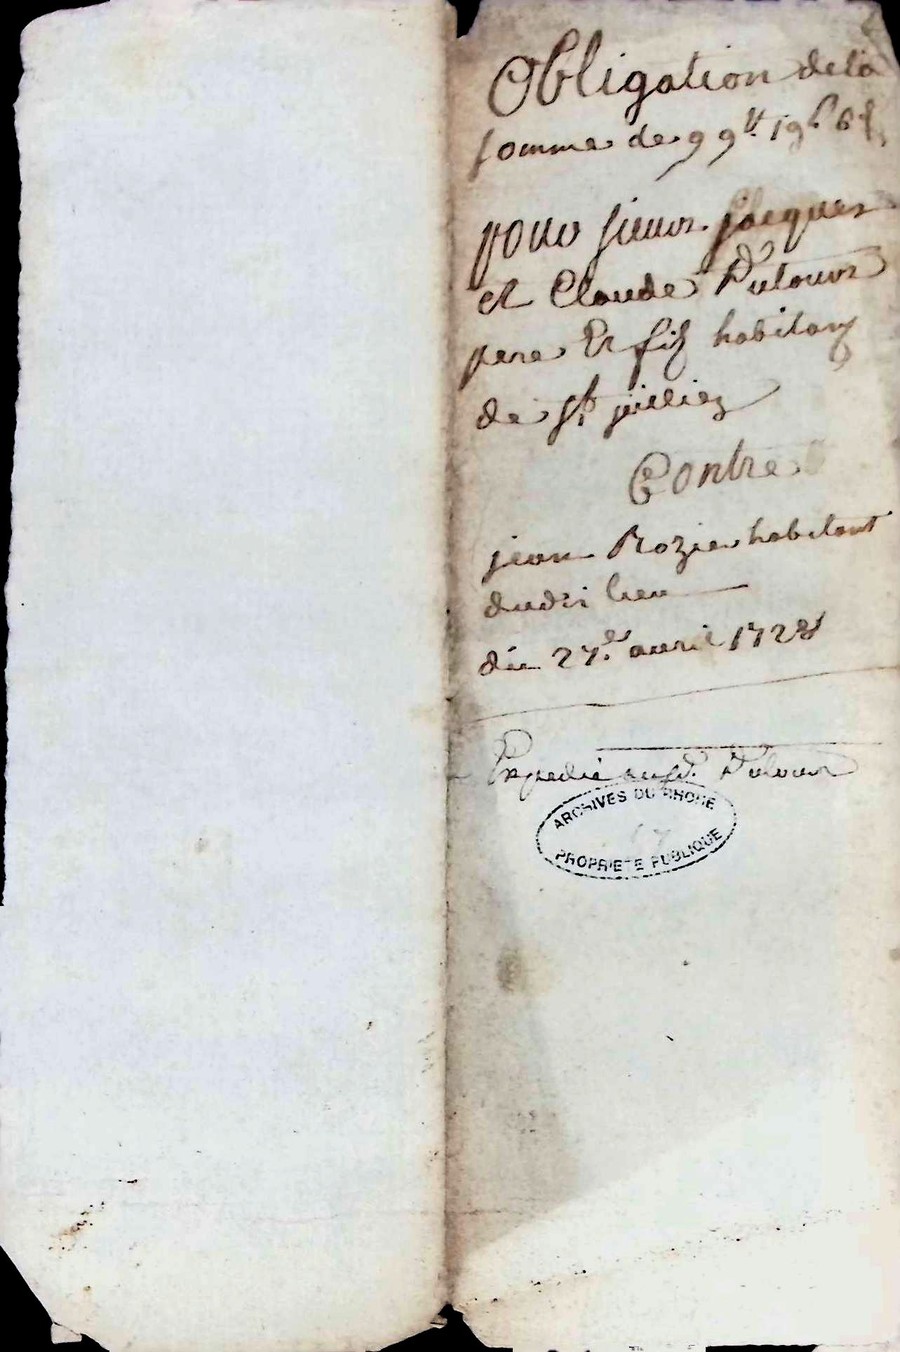 Obligation de la
somme de 99lt 19s 6d
pour sieurs Jacques
et Claude Dutour
pere Et filz habitans
de St jullien
Contre
jean Rozier habitant
dudit lieu
du 27e avril 1728
Expedié aud. Sr. Dutour
ARCHIVES DU RHONE
17
PROPRIETE PUBLIQUE